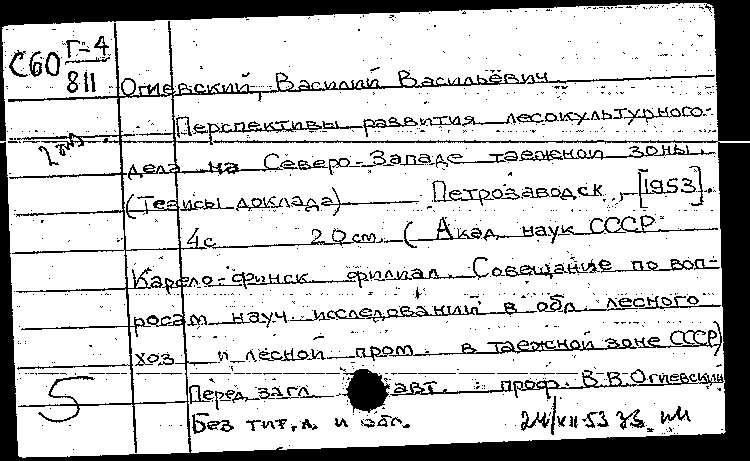 С60 Г-4
811
Огиевский, Василий Васильевич
Перспективы развития лесокультурного
2 экз.
дела на Северо-Западе таежной зоны.
(Тезисы доклада) Петрозаводск, [1953].
4с 20см. (Акад. наук СССР
Карело-финск. филиал. Совещание по воп-
росам науч. исследований в обл. лесного
хоз и лесной пром. в таежной зоне СССР)
5
Перед загл. авт. : проф. В.В.Огиевский
Без тит. л. и обл. 24/XII-53